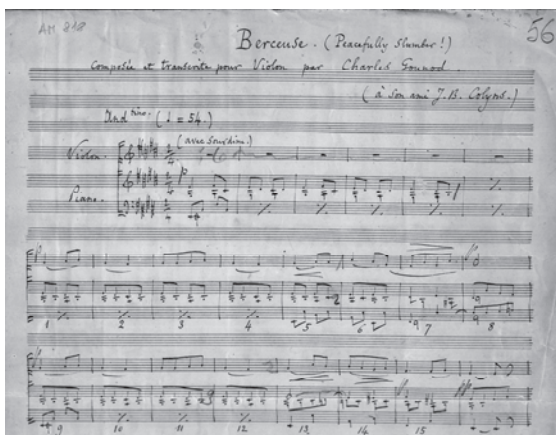 AM 818
56
Berceuse. (Peacefully slumber!)
Composée et transcrite pour Violon par Charles Gounod.
(à son ami J. B. Colyns.)
And^tino. (♩ = 54.)
(avec sourdine.)
Violon.
Piano.
1 2 3 4 5 6 7 8
9 10 11 12 13 14 15